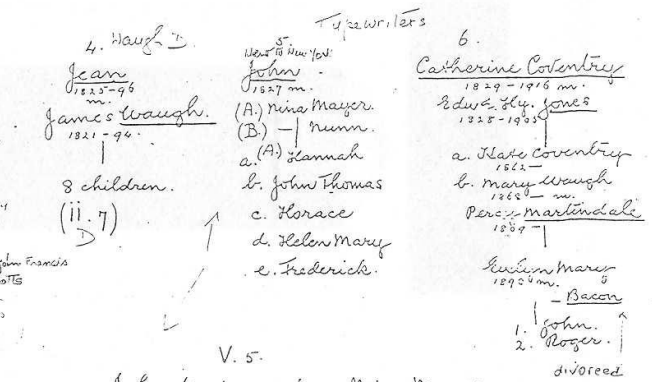 Typewriters
4. Waugh D.
Jean
1825-96
m.
James Waugh.
1821-94.
8 children.
(ii. 7)
D
John Francis
5.
Went to New York
John
1827 m.
(A.) Nina Mayer.
(B.) — Nunn.
a. (A) Hannah
b. John Thomas
c. Horace
d. Helen Mary
e. Frederick.
6.
Catherine Coventry
1829-1916 m.
Edwd. Hy. Jones
1828-1905
a. Kate Coventry
1862-
b. Mary Waugh
1868- m.
Percy Martindale
1869-
Mary
m.
— Bacon
1. John.
2. Roger.
divorced
V. 5.